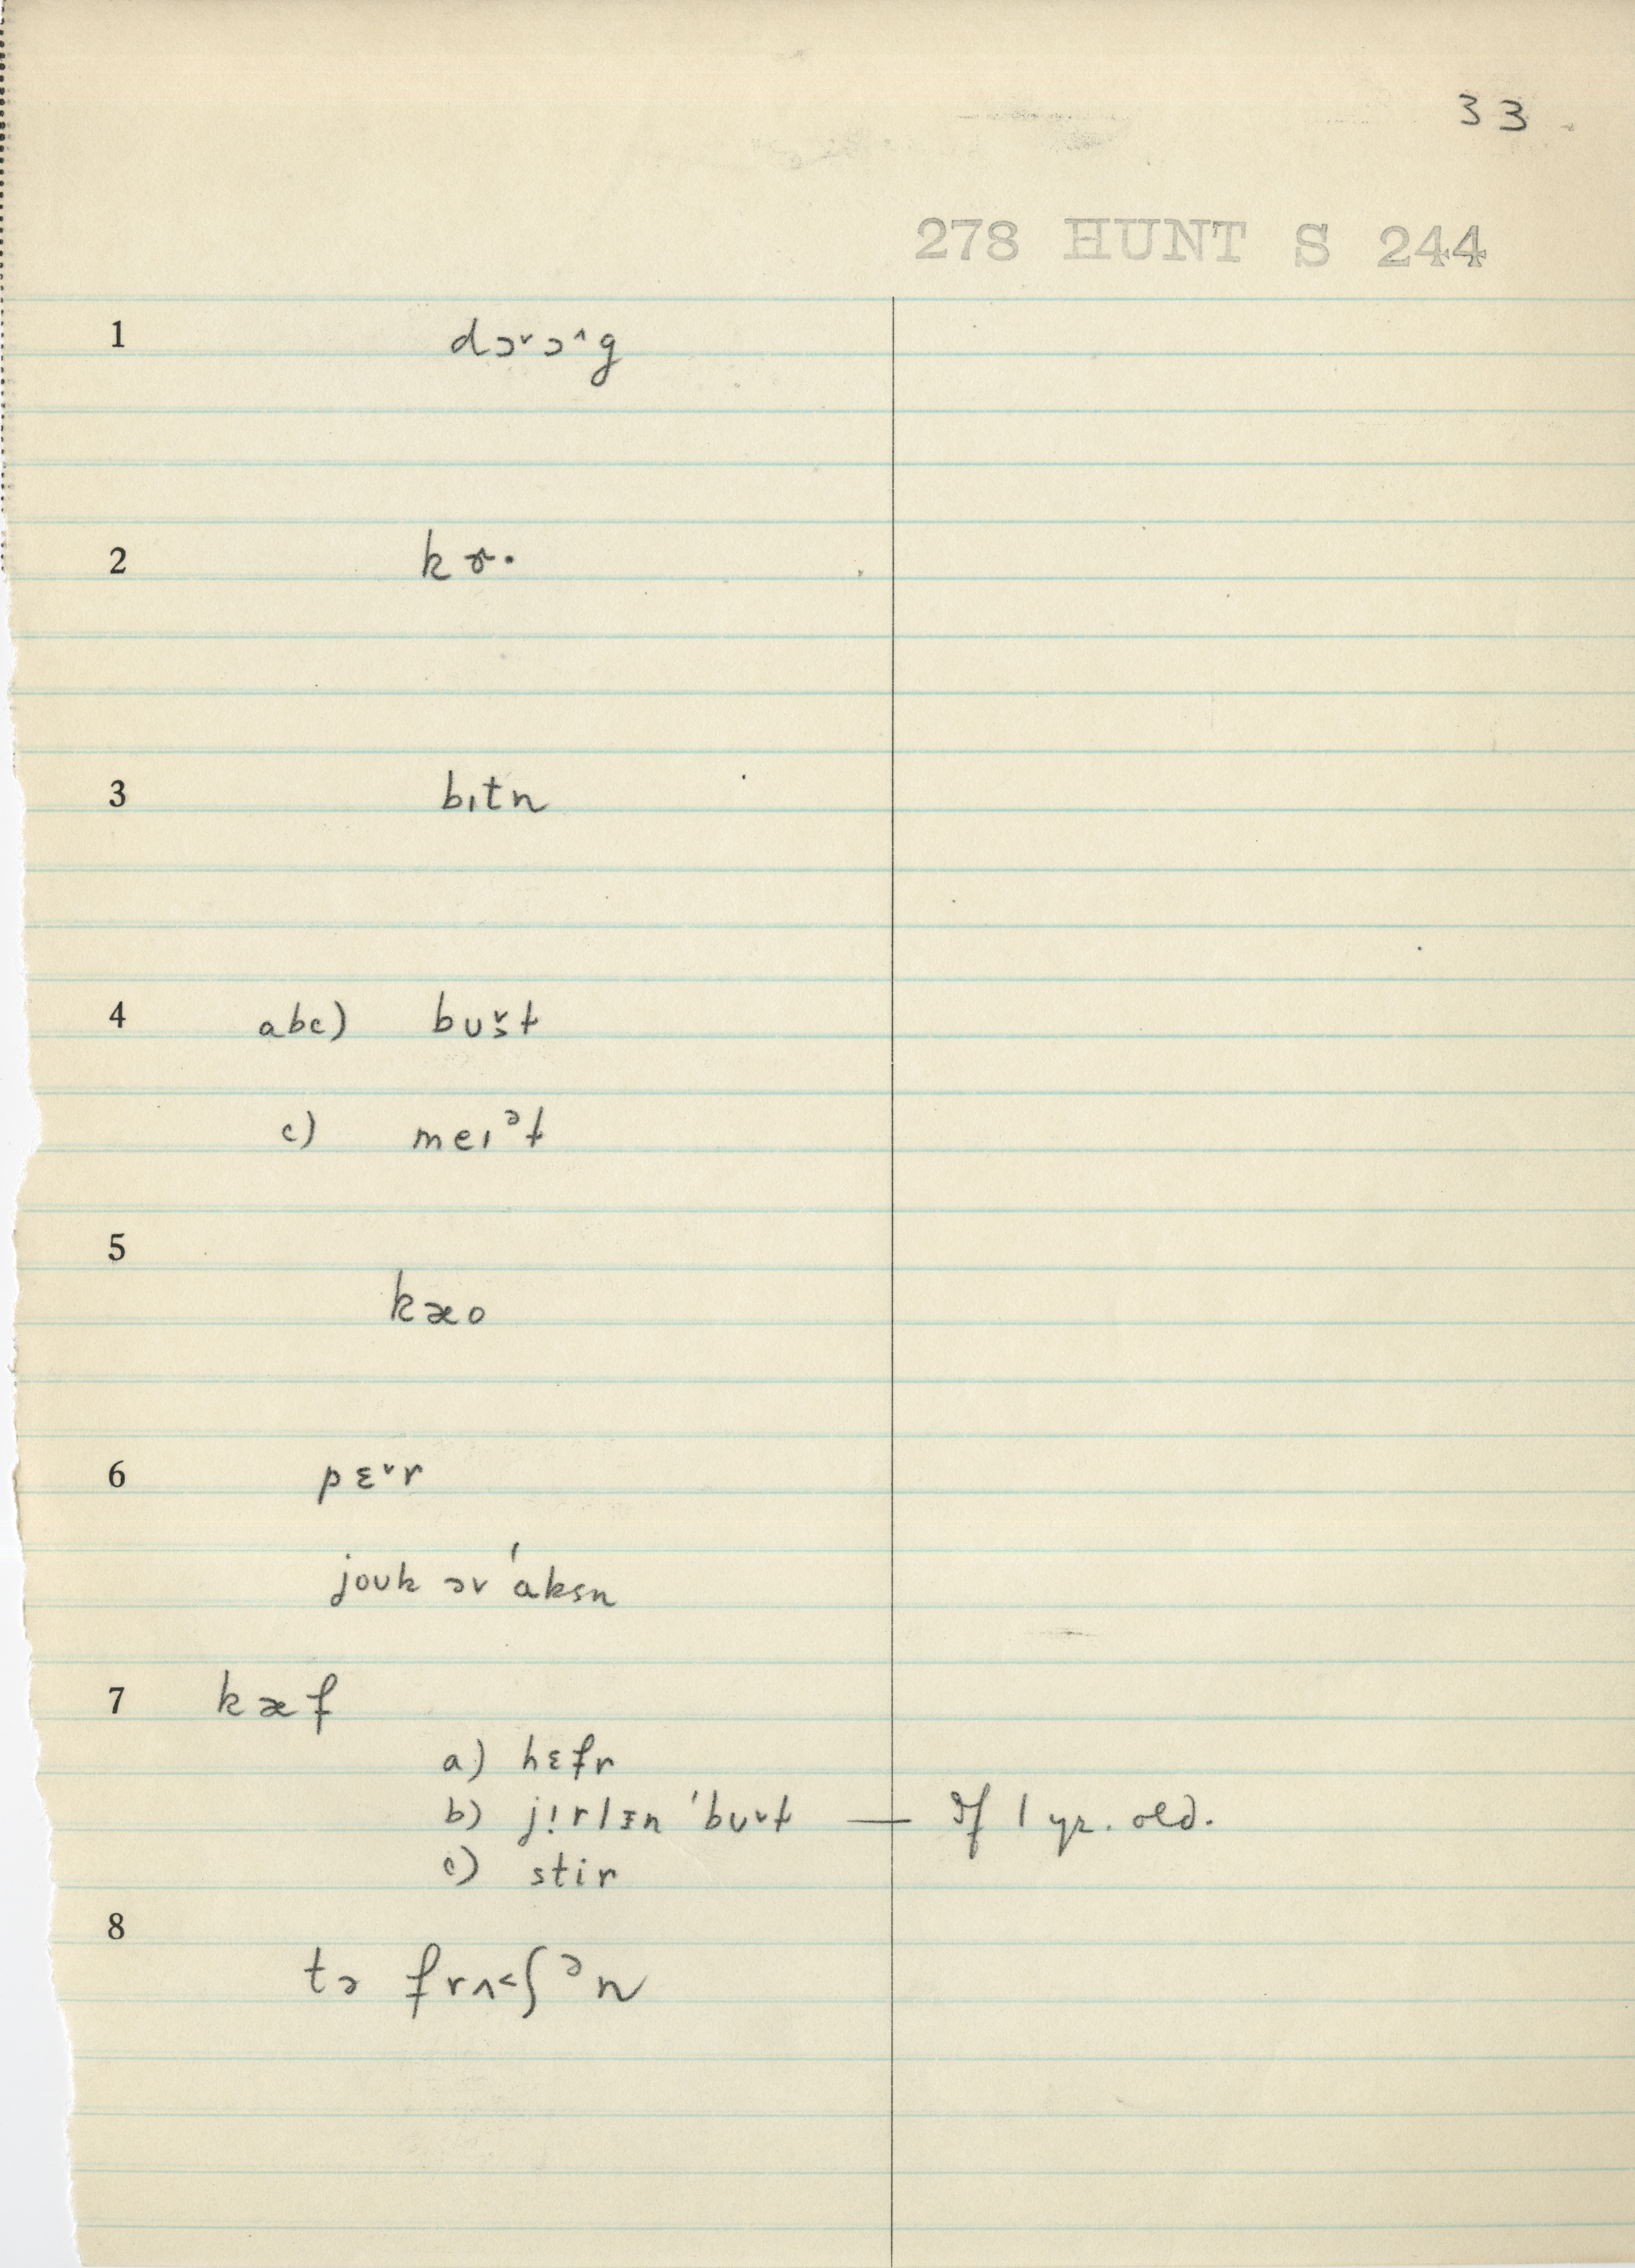 33
278 HUNT S 244
1 dɔ˅ɔ˄g
2
3 bɪtn
4 abc) bʊ˅t
c) meɪᵊt
5 kæo
6 pɛ˅r
joʊk ɔv ˈaksn
7 kæf
a) hɛfr
b) ˈbʊ˅t — If 1 yr. old.
c) stir
8 tə frʌ˂ʃᵊn